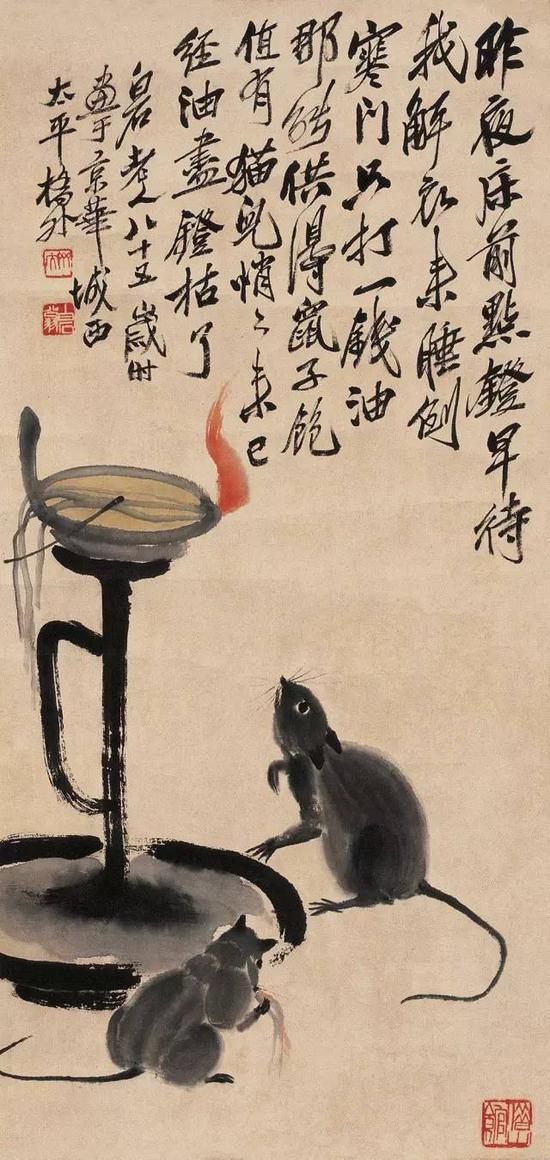 昨夜床前點鐙早待
我解衣来睡倒
寒门只打一錢油
那能供得鼠子飽
值有猫兒悄々来已
經油盡鐙枯了
老人八十五歲时
畫于京華城西
太平橋外